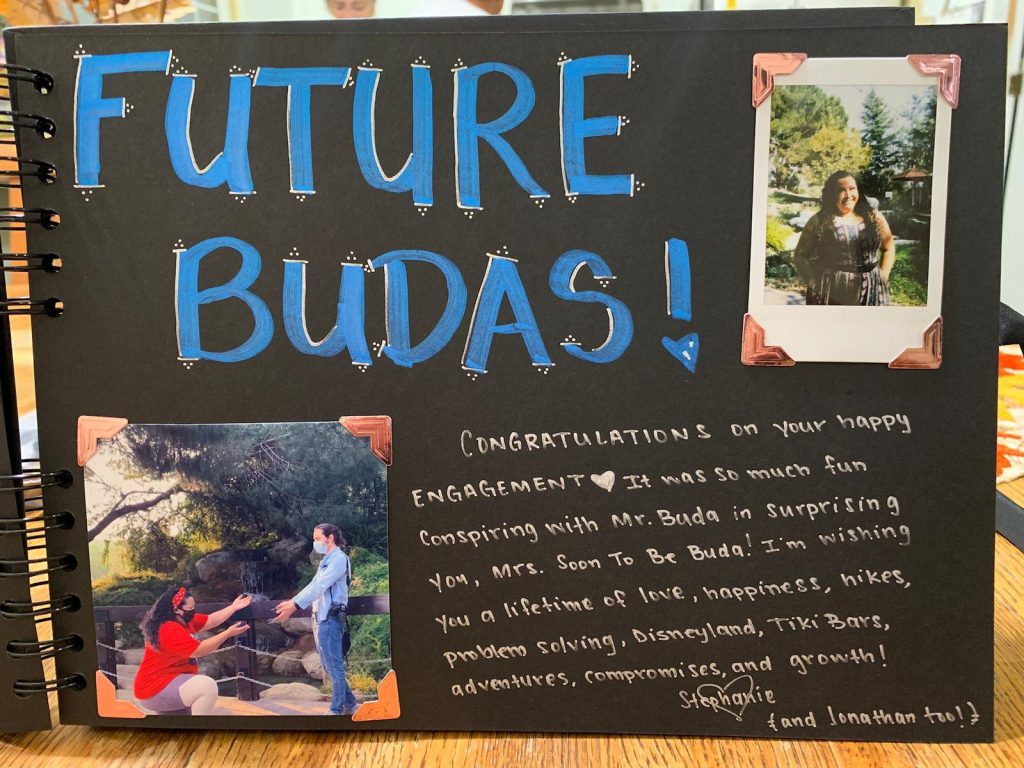 FUTURE
BUDAS!
CONGRATULATIONS on your happy
ENGAGEMENT ♥ It was so much fun
conspiring with Mr. Buda in surprising
you, Mrs. Soon To Be Buda! I'm wishing
you a lifetime of love, happiness, hikes,
problem solving, Disneyland, Tiki Bars,
adventures, compromises, and growth!
Stephanie
{and Jonathan too!}